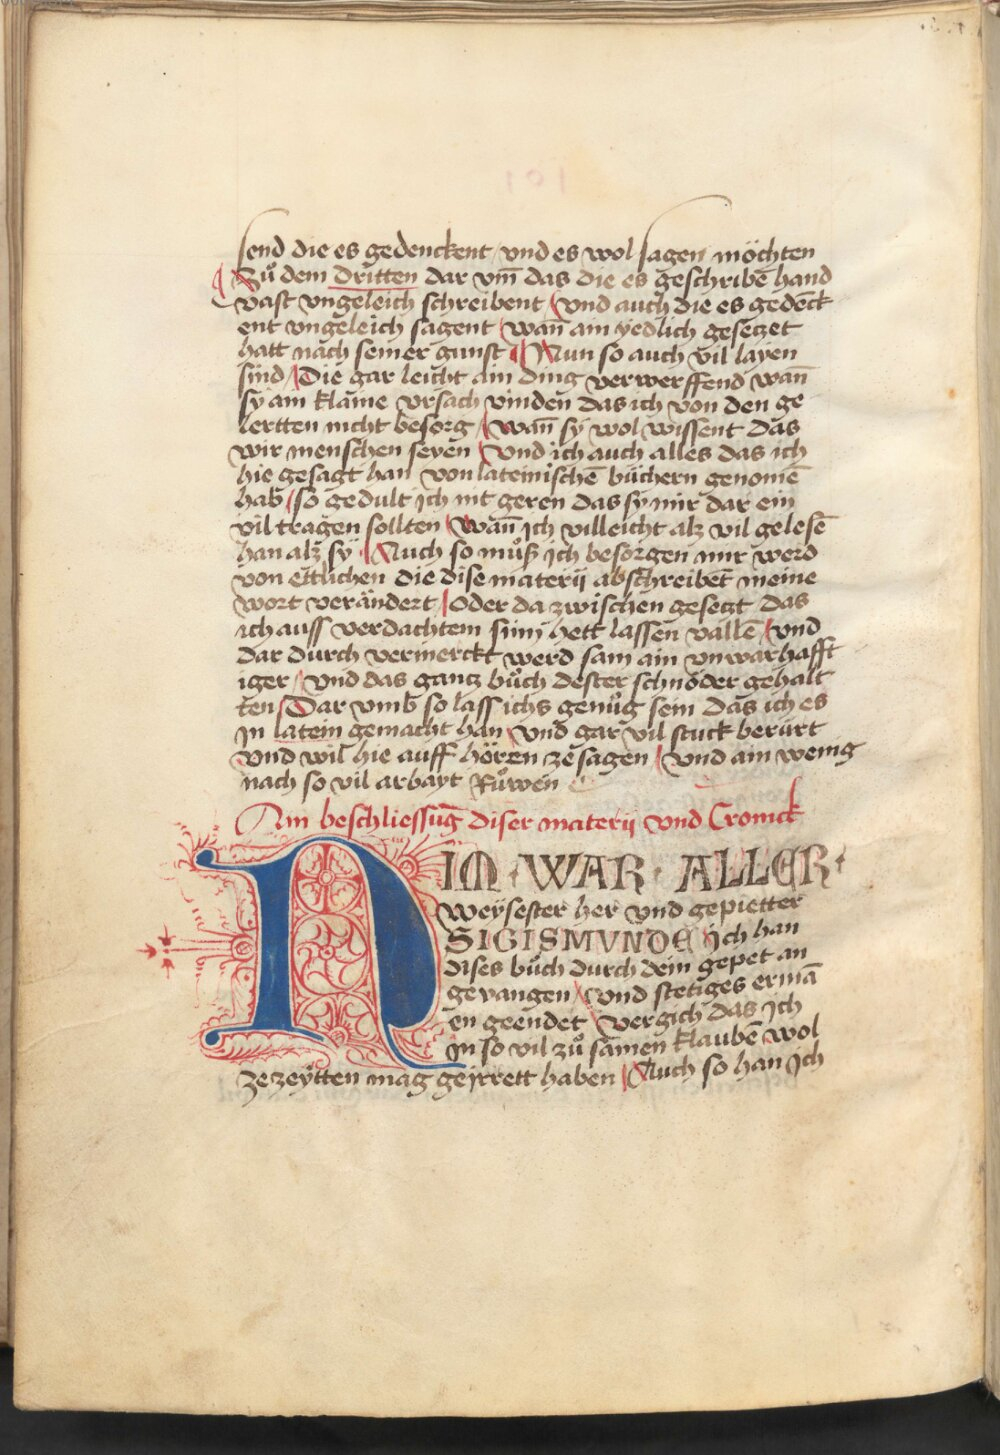 send die es gedenckent / vnd es wol sagen möchten
Zů dem dritten dar vm̄ das die es geschribē hand
vast vngeleich schreibent / vnd auch die es gedēck
ent vngeleich sagent / wan̄ ain yedlich gesetzet
hatt nach seiner gunst / Nun so auch vil layen
sind / Die gar leicht ain ding verwerffend wan̄
sy ain klaine vrsach vinden das ich von den ge
lertten nicht besorg / wan̄ sy wol wissent das
wir menschen seyen / vnd ich auch alles das ich
hie gesagt han von lateinischē büchern genomē
hab / so gedult ich nit geren das sy mir dar ein
vil tragen sollten / wan̄ ich villeicht alz vil gelesē
han alz sy / Auch so můß ich besorgen mir werd
von ettlichen die dise materij abschreibēt meine
wort verändert / Oder da zwischen gesetzt das
ich auss verdachtem sinn hett lassen vallē / vnd
dar durch vermerckt werd sam ain vnwarhafft
iger / vnd das gantz bůch dester schnöder gehalt
ten / Dar vmb so lass ichs genůg sein das ich es
in latein gemacht han / vnd gar vil stuck berürt
vnd wil hie auff hören ze sagen / vnd ain wenig
nach so vil arbayt Růwen
Ain beschliessūg diser materij vnd Cronick
NIM · WAR · ALLER ·
weysester her vnd gepietter
SIGISMVNDE ich han
dises bůch durch dein gepet an
gevangen / vnd stetiges ermā
en geendet / vergich das ich
in so vil zů samen klaubē wol
ze zeytten mag geyrrett haben / Auch so han ich